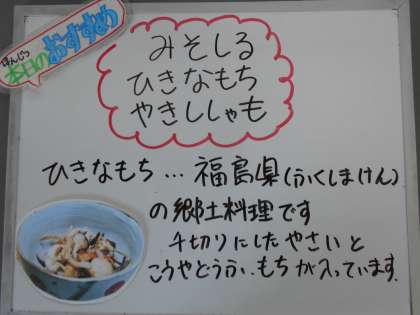 ほんじつ
本日のおすすめ
みそしる
ひきなもち
やきししゃも
ひきなもち…福島県(ふくしまけん)
の郷土料理です
千切りにしたやさいと
こうやどうふ、もちが入っています。